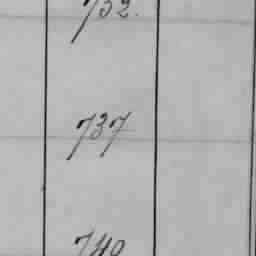 732.
737
740